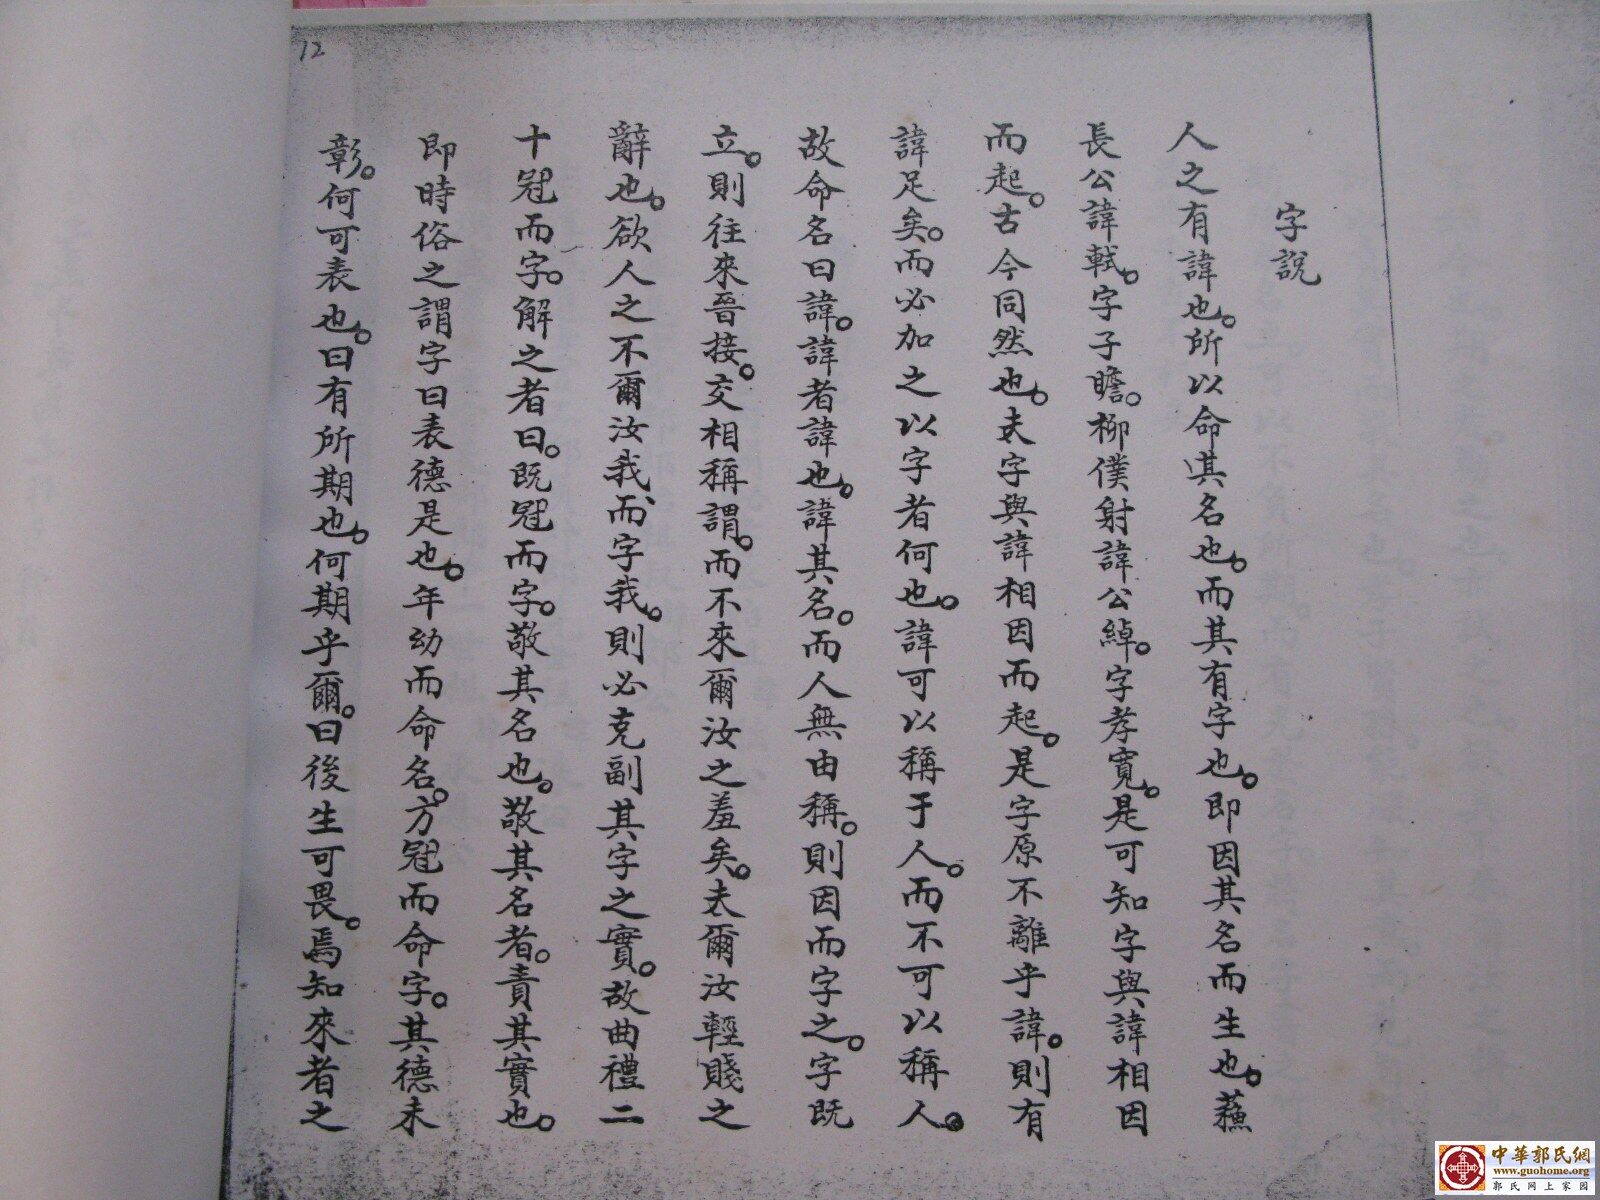 12
字說
人之有諱也。所以命其名也。而其有字也。即因其名而生也。蘇
長公諱軾。字子瞻。柳僕射諱公綽。字孝寬。是可知字與諱相因
而起。古今同然也。夫字與諱相因而起。是字原不離乎諱。則有
諱足矣。而必加之以字者何也。諱可以稱于人。而不可以稱人。
故命名曰諱。諱者諱也。諱其名。而人無由稱。則因而字之。字既
立。則往來晉接。交相稱謂。而不來爾汝之羞矣。夫爾汝輕賤之
辭也。欲人之不爾汝我、而字我。則必克副其字之實。故曲禮二
十冠而字。解之者曰。既冠而字。敬其名也。敬其名者。責其實也。
即時俗之謂字曰表德是也。年幼而命名。方冠而命字。其德未
彰。何可表也。曰有所期也。何期乎爾。曰後生可畏。焉知來者之
中華郭氏網
www.guohome.org
郭氏网上家园